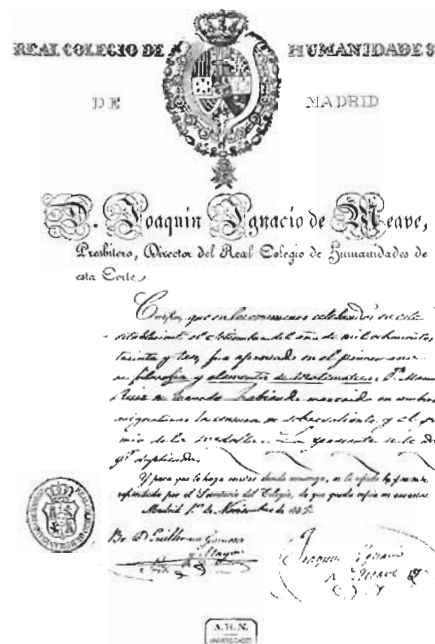 REAL COLEGIO DE HUMANIDADES
DE MADRID
D. Joaquin Ignacio de Meave,
Presbitero, Director del Real Colegio de Humanidades de
esta Corte.
Certifico, que en los celebrados en este
establecimt. el Setiembre del año de mil ochocientos
treinta y tres, fue aprovado en el primer
de filosofia y elementos de Matematicas Dn. Manuel
Ruiz de habiendo merecido en ambas
asignaturas la censura de sobresaliente y el
mio de la medalla. La presente se le da
pr. duplicado.
Y para que lo haga constar donde convenga, se le espide la presente
refrendada por el Secretario del Colegio, de que queda copia en
Madrid 1º de Noviembre de
Br. D. Guillermo
Joaquin Ignacio
de Meave
A.H.N.
UNIVERSIDADES